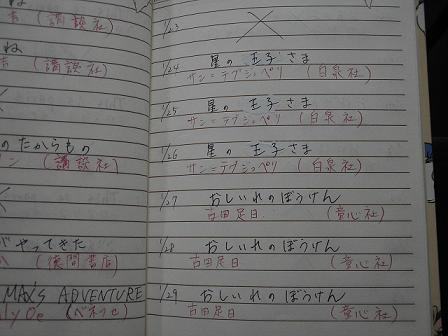 ね
(講談社)
ね
(講談社)
のたからもの
(講談社)
がやってきた
(徳間書店)
MAX'S ADVENTURE
(ベネッセ)
1/23
1/24 星の王子さま
サン=テグジュペリ (白泉社)
1/25 星の王子さま
サン=テグジュペリ (白泉社)
1/26 星の王子さま
サン=テグジュペリ (白泉社)
1/27 おしいれのぼうけん
古田足日 (童心社)
1/28 おしいれのぼうけん
古田足日 (童心社)
1/29 おしいれのぼうけん
古田足日 (童心社)